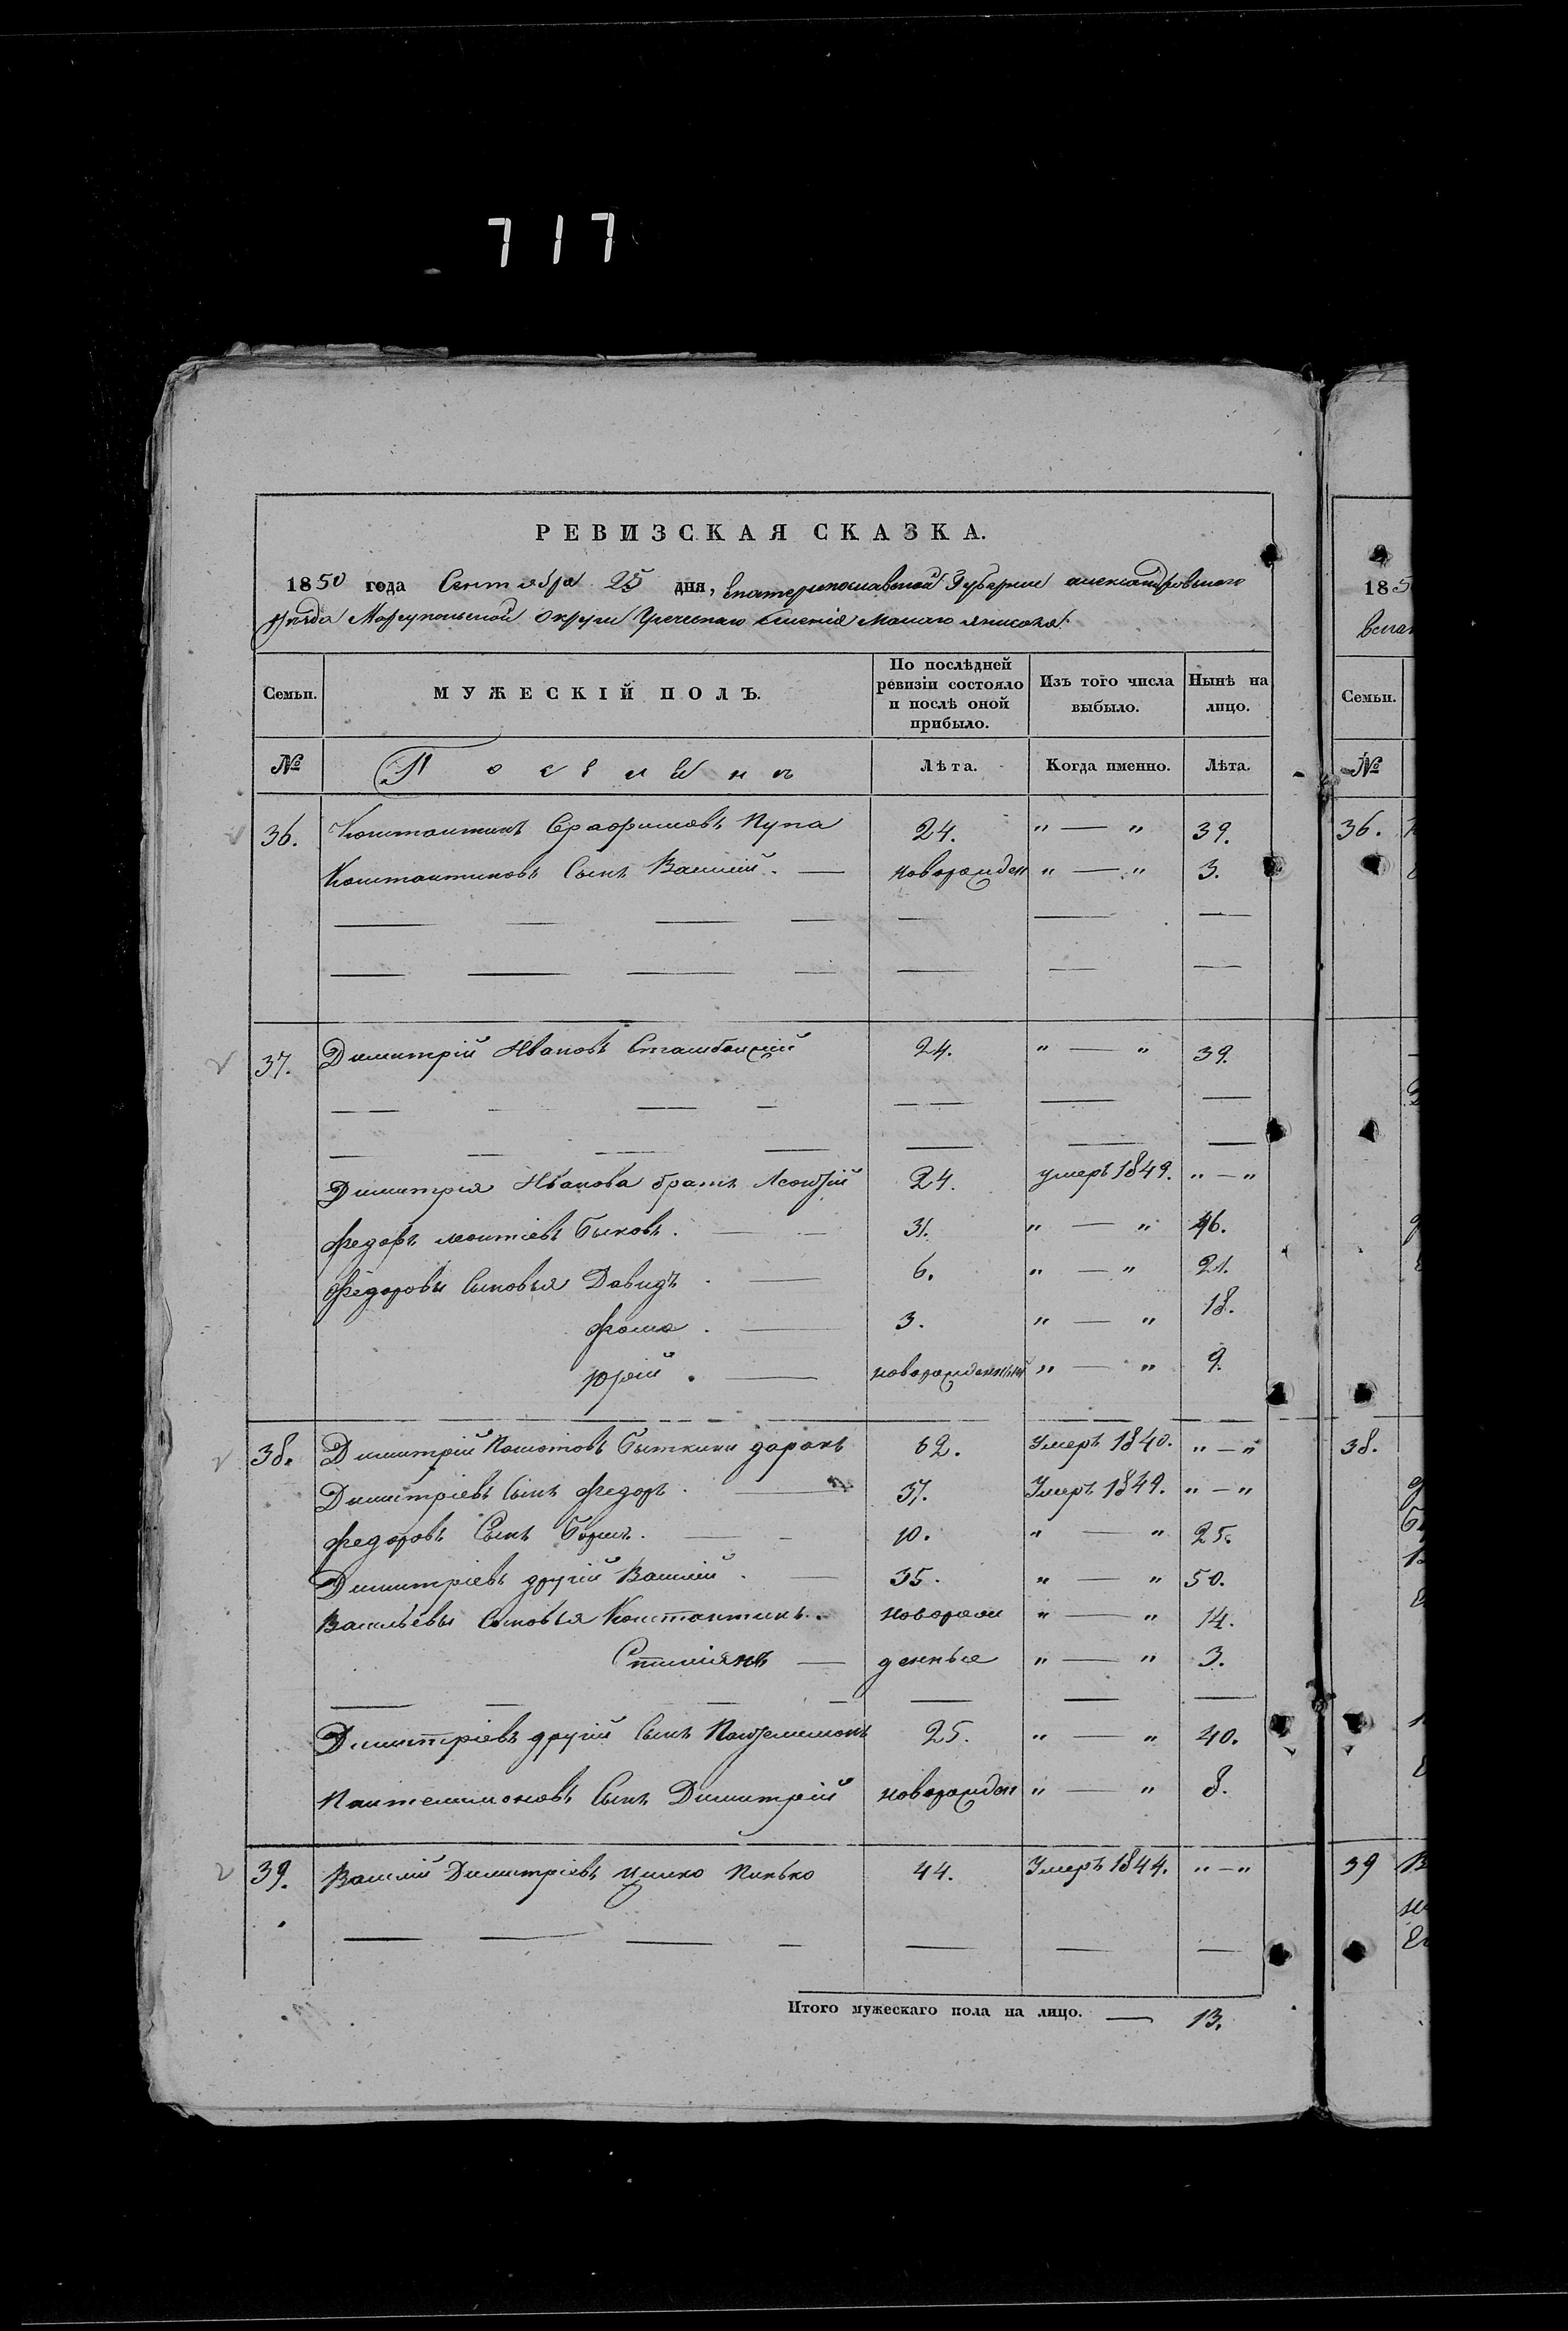 717
РЕВИЗСКАЯ СКАЗКА.
1850 года Сентября 25 дня, Екатеринославской Губернии александровскаго
уезда Мариупольской округи Греческаго селенія Малаго янисоля.
Семьи. МУЖЕСКІЙ ПОЛЪ. По послѣдней ревизіи состояло и послѣ оной прибыло. Изъ того числа выбыло. Нынѣ на лицо.
№ Лѣта. Когда именно. Лѣта.
36. Константинъ Серафимовъ Пупа 24. " — " 39.
Константиновъ Сынъ Василій. — новорожден " — " 3.
37. Димитрій Ивановъ 24. " — " 39.
Димитрія Иванова братъ Леонтій 24. умеръ 1849. " — "
Федоръ леонтіевъ Быковъ. — 31. " — " 46.
Федоровы Сыновья Давидъ. — 6. " — " 21.
Фома. — 3. " — " 18.
Юрій. — новорожденный " — " 9.
38. Димитрій 62. Умеръ 1840. " — "
Димитріевъ Сынъ Федоръ. — 37. Умеръ 1849. " — "
Федоровъ Сынъ Борисъ. — 10. " — " 25.
Димитріевъ другій Василій. — 35. " — " 50.
Васильевы Сыновья Константинъ. новорож " — " 14.
Стиліянъ — денные " — " 3.
Димитріевъ другій Сынъ Пантелимонъ 25. " — " 40.
Пантелимоновъ Сынъ Димитрій новорожден " — " 8.
39. Василій Димитріевъ Пинько 44. Умеръ 1844. " — "
Итого мужескаго пола на лицо. — 13.
185
Семьи.
№
36.
38.
39